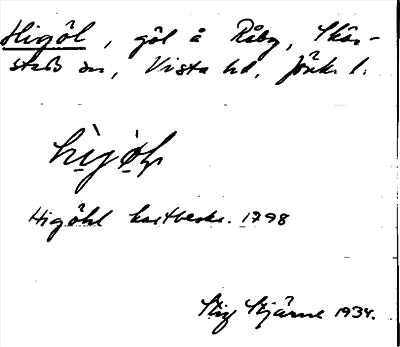 Higöl, göl å Råby, Skär-
stads sn, Vista hd, Jönk. l.
hìgö̀l
Higöhl kartbeskr. 1798
Stig Stjärne 1934.